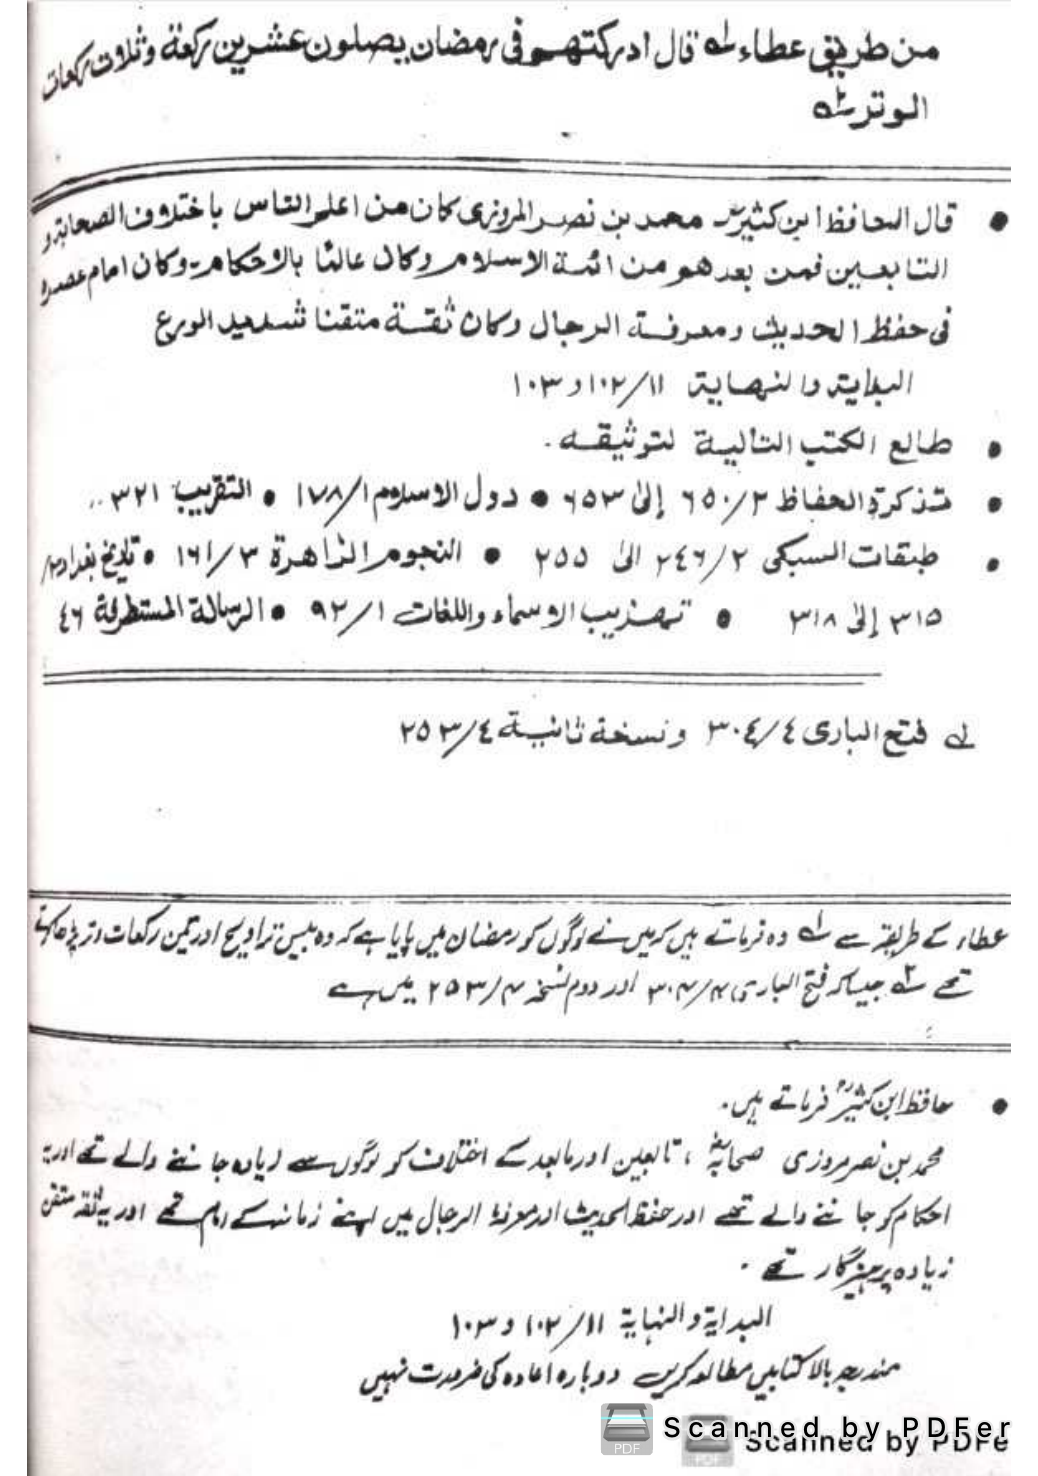 من طريق عطاء له قال ادركتهم فى رمضان يصلون عشرين ركعة وثلاث ركعات
الوتر له
• قال الحافظ ابن كثيرؒ محمد بن نصر المروزى كان من اعلم الناس باختلاف الصحابة و
التابعين فمن بعدهم من ائمة الاسلام وكان عالما بالاحكام - وكان امام عصره
فى حفظ الحديث ومعرفة الرجال وكان ثقة متقنا شديد الورع
البداية والنهاية ١١/١٠٢ و ١٠٣
• طالع الكتب التالية لتوثيقه -
• تذكرة الحفاظ ٢/٦٥٠ إلى ٦٥٣ • دول الاسلام ١/١٧٨ • التقريب ٣٢١ ..
• طبقات السبكى ٢/٢٤٦ الى ٢٥٥ • النجوم الزاهرة ٣/١٦١ • تاريخ بغداد ٣/
٣١٥ إلى ٣١٨ • تهذيب الاسماء واللغات ١/٩٢ • الرسالة المستطرفة ٤٦
لے فتح البارى ٤/٣٠٤ ونسخة ثانية ٤/٢٥٣
عطاء کے طریقہ سے لہ وہ فرماتے ہیں کہ میں نے لوگوں کو رمضان میں پایا ہے کہ وہ بیس تراویح اور تین رکعات وتر پڑھا کرتے
تھے لہ جیسا کہ فتح الباری ۴/۳۰۴ اور دوم نسخہ ۴/۲۵۳ میں ہے
• حافظ ابن کثیرؒ فرماتے ہیں.
محمد بن نصر مروزی صحابہؓ ، تابعین اور مابعد کے اختلاف کو لوگوں سے زیادہ جاننے والے تھے اور یہ
احکام کو جاننے والے تھے اور حفظ الحدیث اور معرفۃ الرجال میں اپنے زمانہ کے امام تھے اور یہ ثقہ متقن
زیادہ پرہیزگار تھے .
البدایة والنهایة ١١/١٠٢ و ١٠٣
مندرجہ بالا کتابیں مطالعہ کریں دوبارہ اعادہ کی ضرورت نہیں
Scanned by PDFer
Scanned by PDFe